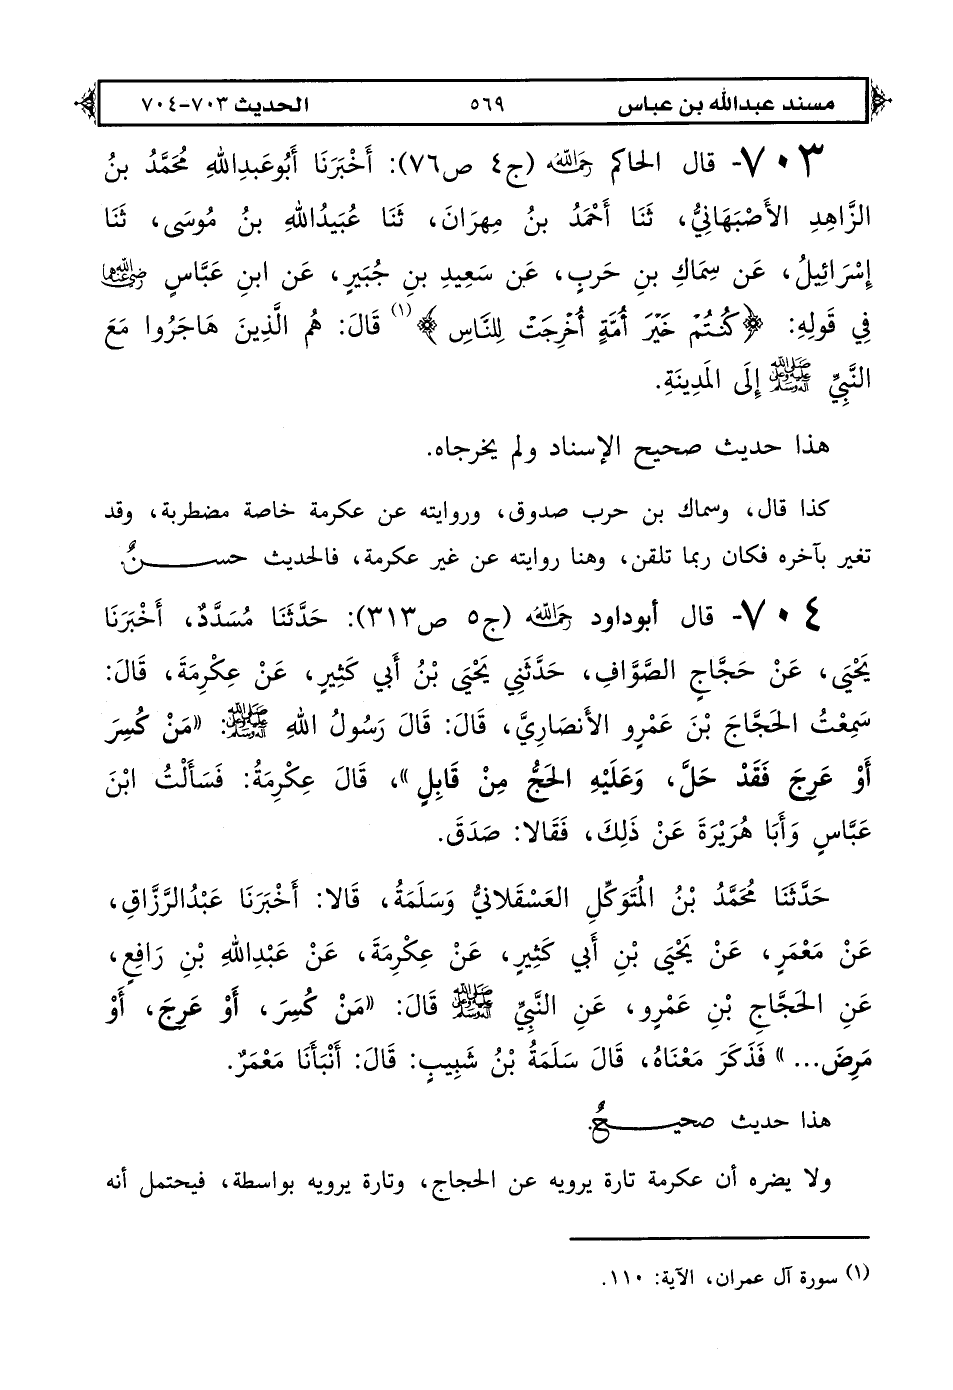 مسند عبدالله بن عباس ٥٦٩ الحديث ٧٠٣-٧٠٤
٧٠٣- قال الحاكم رحمه الله (ج٤ ص٧٦): أَخْبَرَنَا أَبُوعَبدِاللهِ مُحَمَّدُ بنُ
الزَّاهِدِ الأَصْبَهَانِيُّ، ثَنَا أَحْمَدُ بنُ مِهرَانَ، ثَنَا عُبَيدُاللهِ بنُ مُوسَى، ثَنَا
إِسْرَائِيلُ، عَن سِمَاكِ بنِ حَربٍ، عَن سَعِيدِ بنِ جُبَيرٍ، عَن ابنِ عَبَّاسٍ رضي الله عنهما
فِي قَولِهِ: ﴿كُنتُمْ خَيْرَ أُمَّةٍ أُخْرِجَتْ لِلنَّاسِ﴾(١) قَالَ: هُم الَّذِينَ هَاجَرُوا مَعَ
النَّبِيِّ ﷺ إِلَى المَدِينَةِ.
هذا حديث صحيح الإسناد ولم يخرجاه.
كذا قال، وسماك بن حرب صدوق، وروايته عن عكرمة خاصة مضطربة، وقد
تغير بآخره فكان ربما تلقن، وهنا روايته عن غير عكرمة، فالحديث حســـــنٌ.
٧٠٤- قال أبوداود رحمه الله (ج٥ ص٣١٣): حَدَّثَنَا مُسَدَّدٌ، أَخْبَرَنَا
يَحْيَى، عَنْ حَجَّاجٍ الصَّوَّافِ، حَدَّثَنِي يَحْيَى بْنُ أَبي كَثِيرٍ، عَنْ عِكْرِمَةَ، قَالَ:
سَمِعْتُ الحَجَّاجَ بْنَ عَمْرٍو الأَنصَارِيَّ، قَالَ: قَالَ رَسُولُ اللهِ ﷺ: «مَنْ كُسِرَ
أَوْ عَرِجَ فَقَدْ حَلَّ، وَعَلَيْهِ الحَجُّ مِنْ قَابِلٍ»، قَالَ عِكْرِمَةُ: فَسَأَلْتُ ابْنَ
عَبَّاسٍ وَأَبَا هُرَيْرَةَ عَنْ ذَلِكَ، فَقَالا: صَدَقَ.
حَدَّثَنَا مُحَمَّدُ بْنُ المُتَوَكِّلِ العَسْقَلانيُّ وَسَلَمَةُ، قَالا: أَخْبَرَنَا عَبْدُالرَّزَّاقِ،
عَنْ مَعْمَرٍ، عَنْ يَحْيَى بْنِ أَبي كَثِيرٍ، عَنْ عِكْرِمَةَ، عَنْ عَبْدِاللهِ بْنِ رَافِعٍ،
عَنِ الحَجَّاجِ بْنِ عَمْرٍو، عَنِ النَّبِيِّ ﷺ قَالَ: «مَنْ كُسِرَ، أَوْ عَرِجَ، أَوْ
مَرِضَ...» فَذَكَرَ مَعْنَاهُ، قَالَ سَلَمَةُ بْنُ شَبِيبٍ: قَالَ: أَنْبَأَنَا مَعْمَرٌ.
هذا حديث صحيـــــحٌ.
ولا يضره أن عكرمة تارة يرويه عن الحجاج، وتارة يرويه بواسطة، فيحتمل أنه
(١) سورة آل عمران، الآية: ١١٠.